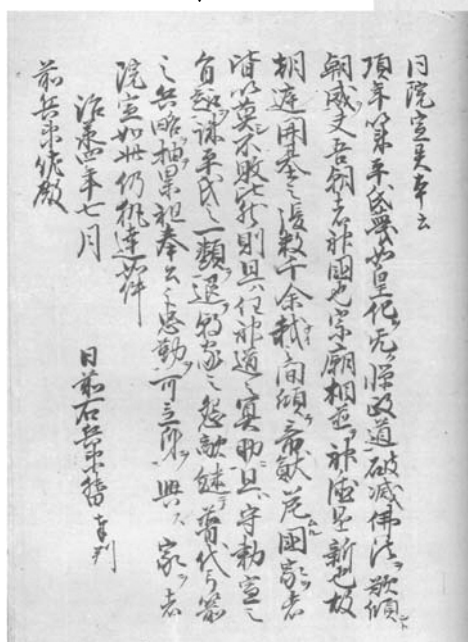 同院宣異本云
項年以来平氏蔑如皇化无憚政道破滅佛法欲傾
朝威夫吾朝者神國也宗廟相並神徳是新也故
朝庭開基之後数千余載之間傾帝猷危國家者
皆以莫不敗北然則且任神道之冥助且守勅宣之
旨趣誅平氏之一類退朝家之怨敵継普代弓箭
之兵略抽累祖奉公之忠勤可立身興家者
院宣如此仍執達如件
治承四年七月 日前右兵衛督奉判
前兵衛佐殿